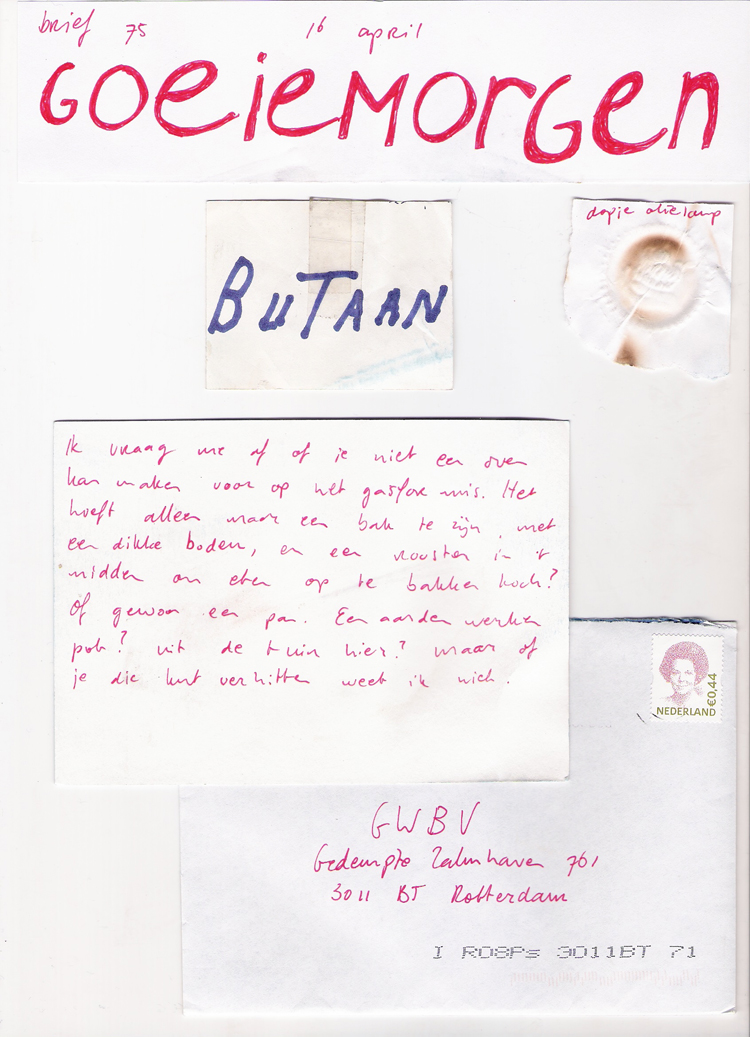 brief 75 16 april
GOEIEMORGEN
BUTAAN
dopje olielamp
Ik vraag me af of je niet een oven
kan maken voor op het gasfornuis. Het
hoeft alleen maar een bak te zijn, met
een dikke bodem, en een rooster in 't
midden om eten op te bakken toch?
Of gewoon een pan. Een aarden werken
pot? uit de tuin hier? maar of
je die kunt verhitten weet ik niet.
€0,44
NEDERLAND
GWBV
Gedempte Zalmhaven 761
3011 BT Rotterdam
I RO8Ps 3011BT 71